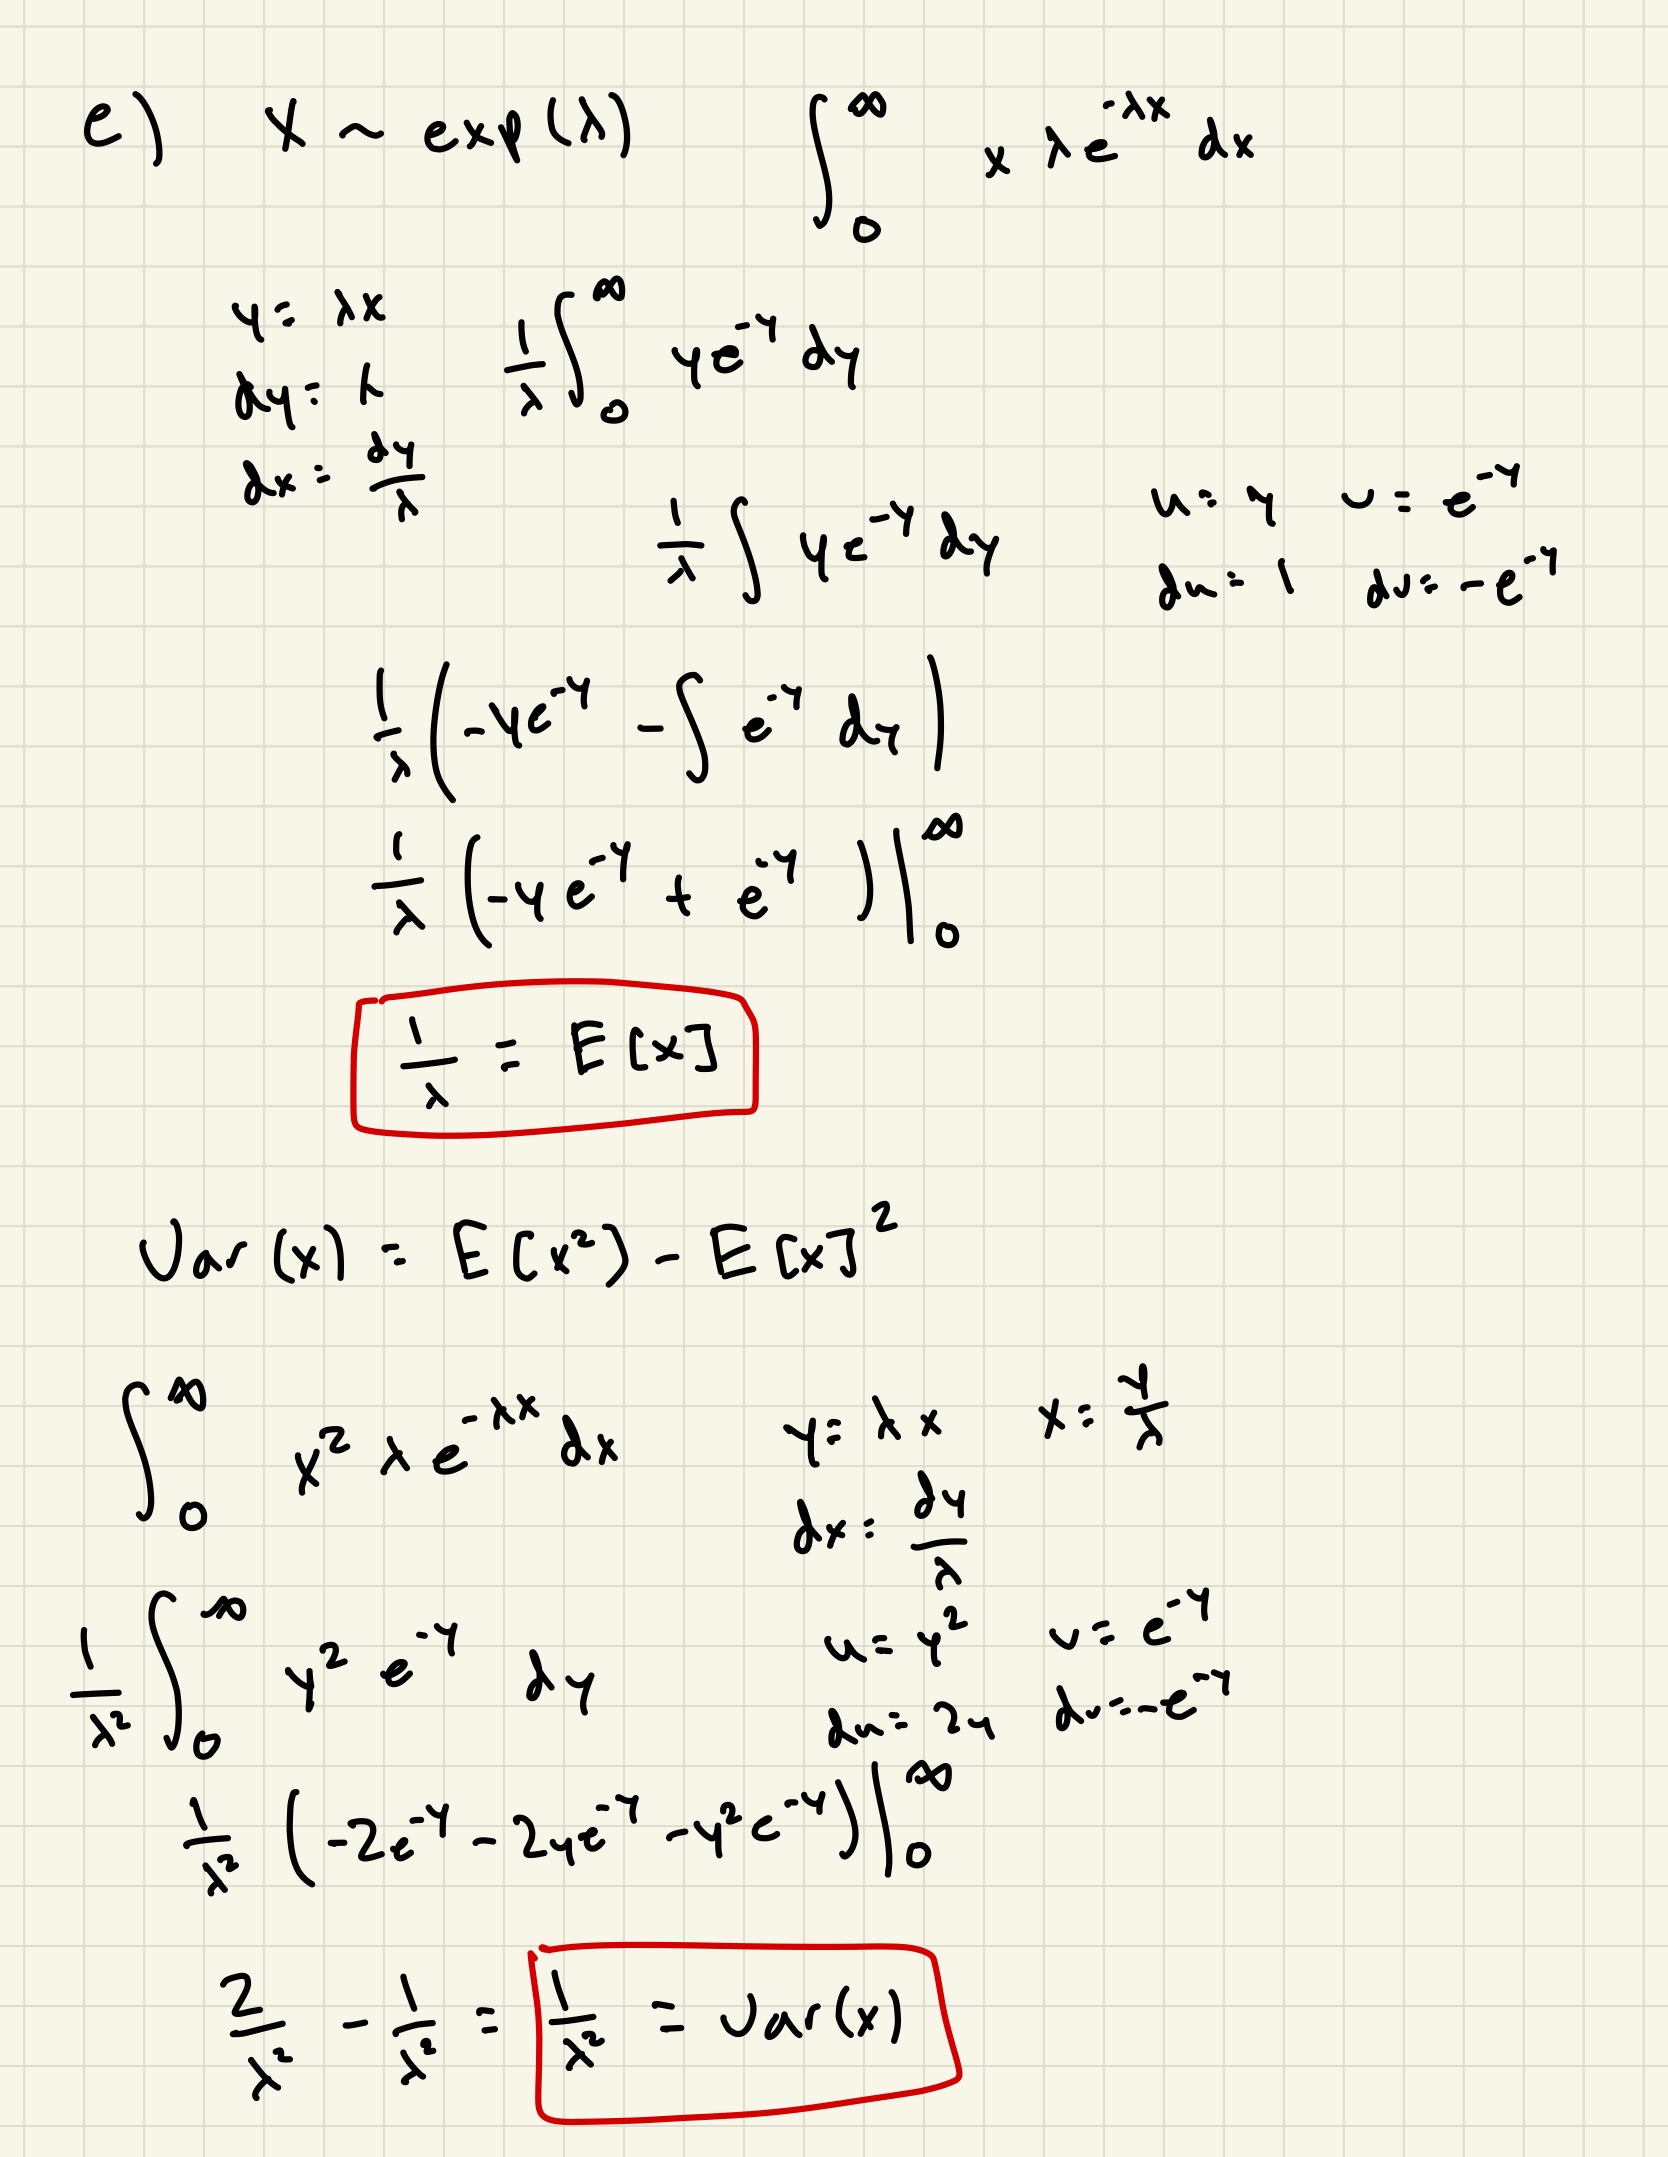 e) X ~ exp(λ) ∫₀^∞ x λe^{-λx} dx
y = λx 1/λ ∫₀^∞ ye^{-y} dy
dy = λ
dx = dy/λ
1/λ ∫ ye^{-y} dy u = y v = e^{-y}
du = 1 dv = -e^{-y}
1/λ (-ye^{-y} - ∫ e^{-y} dy)
1/λ (-ye^{-y} + e^{-y})|₀^∞
1/λ = E[x]
Var(x) = E[x²) - E[x]²
∫₀^∞ x² λ e^{-λx} dx y = λx x = y/λ
dx = dy/λ
1/λ² ∫₀^∞ y² e^{-y} dy u = y² v = e^{-y}
du = 2y dv = -e^{-y}
1/λ² (-2e^{-y} - 2ye^{-y} - y²e^{-y})|₀^∞
2/λ² - 1/λ² = 1/λ² = Var(x)